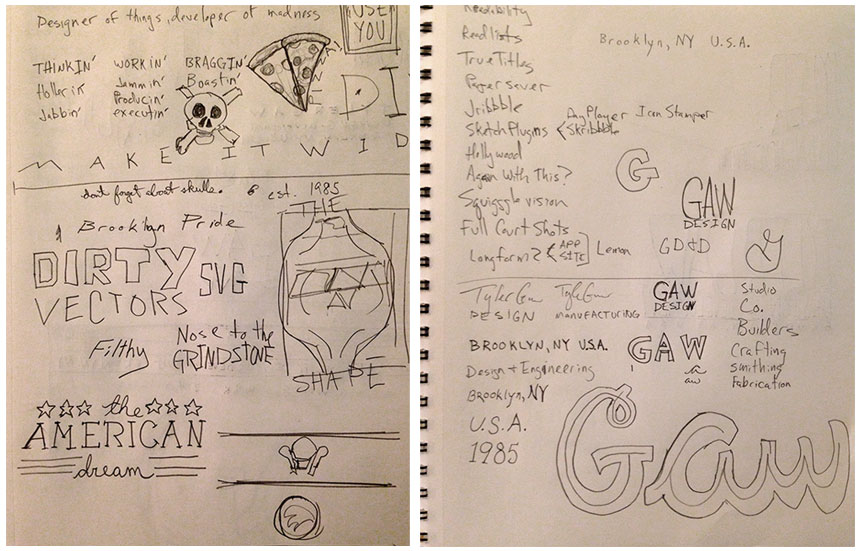 Designer of things, developer of madness
USE
YOU
THINKIN' WORKIN' BRAGGIN'
Hollerin' Jammin' Boastin'
Jabbin' Producin'
executin'
DI
MAKE IT WID
don't forget about skulls. est. 1985
THE
Brooklyn Pride
DIRTY
VECTORS
SVG
Filthy
Nose to the
GRINDSTONE
SHAPE
the
AMERICAN
dream
Readability
Readlists
TrueTitles
Paper saver
Jribbble
SketchPlugins
DayPlayer Icon Stamper
Skribbble
Hollywood
Again With This?
Squigggle vision
Full Court Shots
Longform2
APP
SITE
Lemon
Brooklyn, NY U.S.A.
G
GAW
DESIGN
GD&D
G
Tyler Gaw
DESIGN
Tyler Gaw
MANUFACTURING
GAW
DESIGN
Studio
Co.
Builders
Crafting
smithing
Fabrication
BROOKLYN, NY U.S.A.
GAW
aw
Design + Engineering
Brooklyn, NY
U.S.A.
1985
Gaw